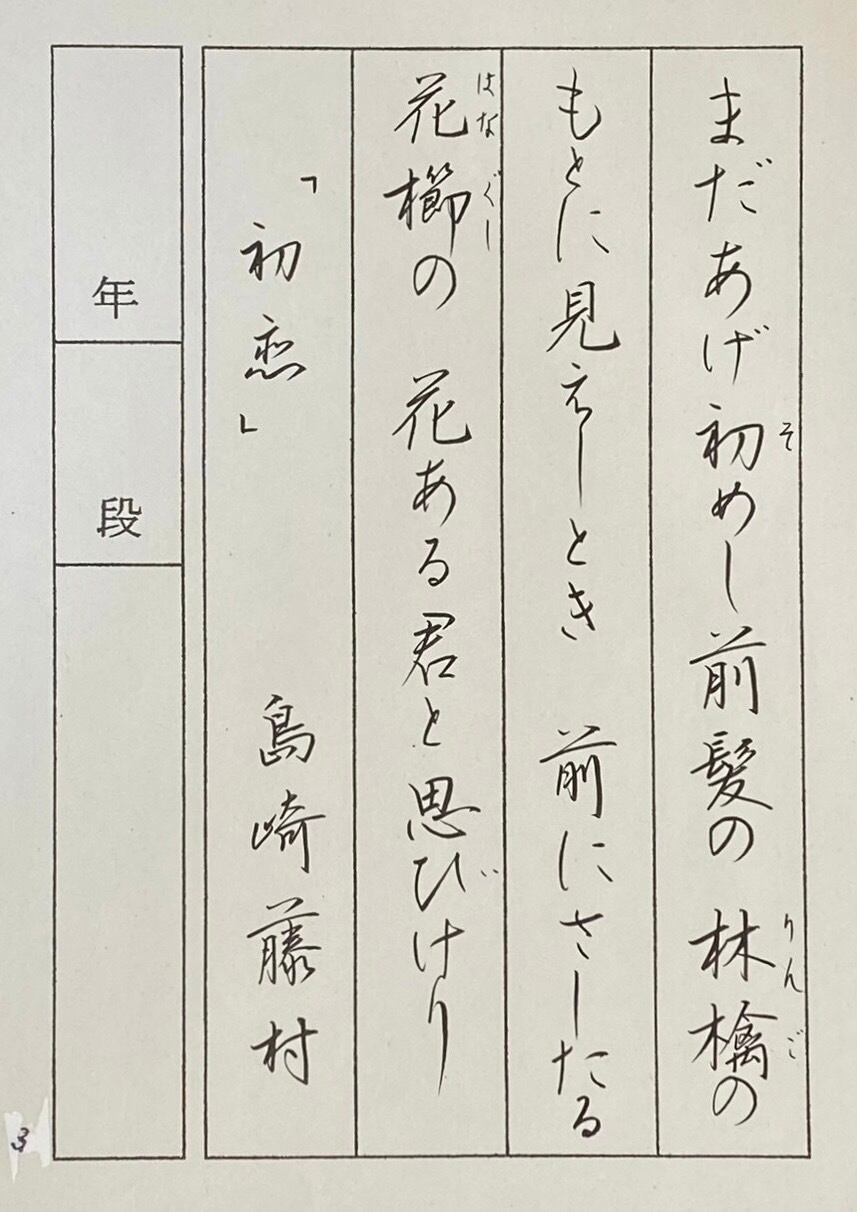 そ りんご
まだあげ初めし前髪の 林檎の
もとに見えしとき 前にさしたる
はなぐし
花櫛の 花ある君と思びけり
「初恋」 島崎藤村
年 段
3